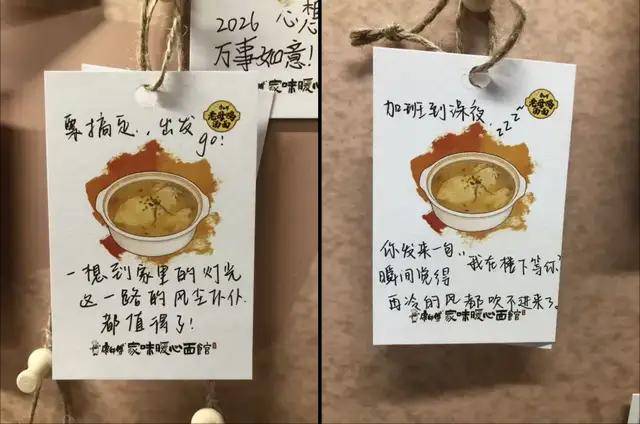 2026 心想
万事如意!
家味暖心面館
票搞定..出发
go!
老母鸡
一想到家里的灯光
这一路的风尘仆仆.
都值得了!
康师傅家味暖心面館
加班到深夜,
zzzz
老母鸡
你发来一句,,我在楼下等你"
瞬间觉得
再冷的风都吹不进来了。
康师傅家味暖心面館